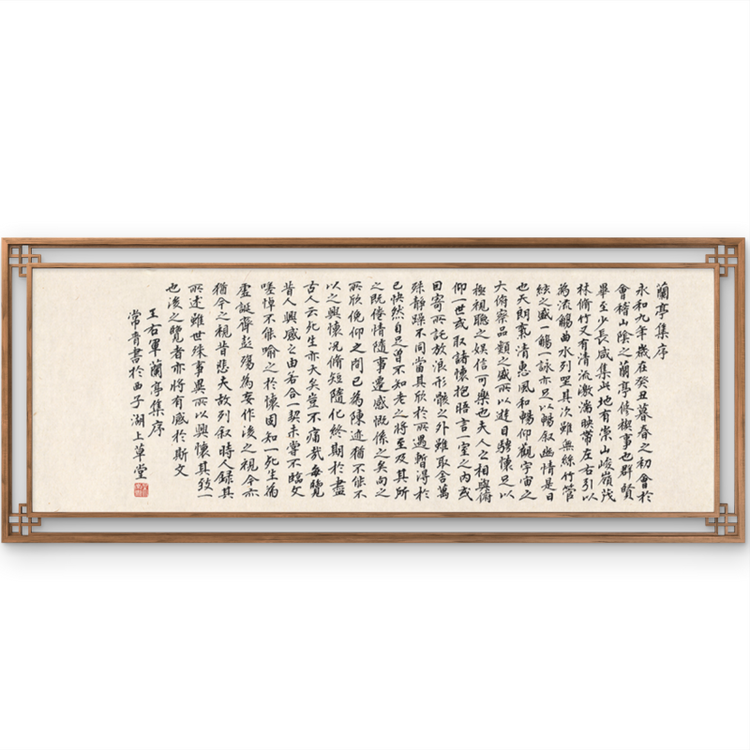 蘭亭集序
永和九年歲在癸丑暮春之初會於
會稽山陰之蘭亭脩禊事也群賢
畢至少長咸集此地有崇山峻嶺茂
林脩竹又有清流激湍映帶左右引以
為流觴曲水列坐其次雖無絲竹管
絃之盛一觴一詠亦足以暢叙幽情是日
也天朗氣清惠風和暢仰觀宇宙之
大俯察品類之盛所以遊目騁懷足以
極視聽之娛信可樂也夫人之相與俯
仰一世或取諸懷抱晤言一室之內或
因寄所託放浪形骸之外雖取舍萬
殊靜躁不同當其欣於所遇暫得於
己怏然自足曾不知老之將至及其所
之既倦情隨事遷感慨係之矣向之
所欣俛仰之間已為陳迹猶不能不
以之興懷況脩短隨化終期於盡
古人云死生亦大矣豈不痛哉每覽
昔人興感之由若合一契未嘗不臨文
嗟悼不能喻之於懷固知一死生為
虛誕齊彭殤為妄作後之視今亦
猶今之視昔悲夫故列叙時人錄其
所述雖世殊事異所以興懷其致一
也後之覽者亦將有感於斯文
王右軍蘭亭集序
常青書於西子湖上草堂